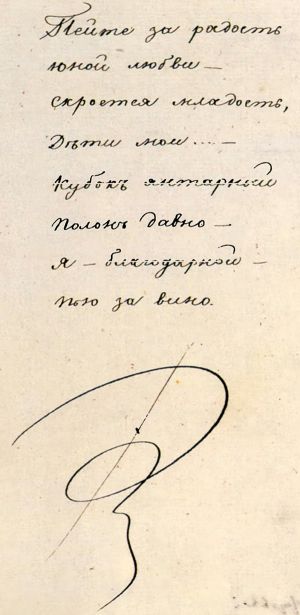 Пейте за радость
юной любви —
скроется младость,
Дѣти мои ... —
Кубокъ янтарный
полонъ давно —
я — благодарной —
пью за вино.